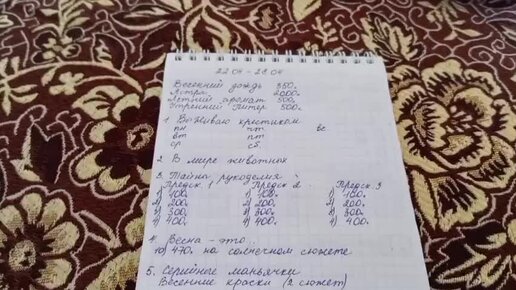 22.04 - 28.04
Весенний дождь 350.
Астра 1000.
Летний аромат 500.
Утренний Питер 500.
1. Вышиваю крестиком
пн чт вс
вт пт
ср сб
2. В мире животных
3. Тайны рукоделия
Предск. 1 Предск 2 Предск. 3
1) 100. 1) 100. 1) 100.
2) 200. 2) 200. 2) 200.
3) 300. 3) 300. 3) 300.
4) 400. 4) 400. 4) 400.
4. Весна - это
10) 470. на солнечном сюжете
5. Серийные маньячки
Весенние краски (2 сюжет)